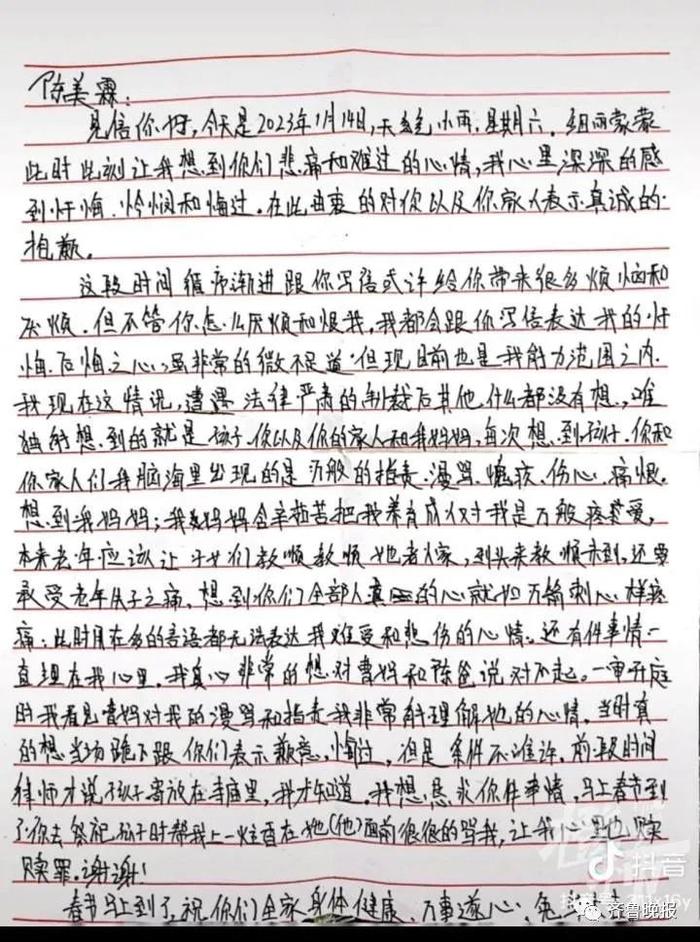 陈美霖:
见信你好,今天是2023年1月14日,天气小雨,星期六。细雨蒙蒙
此时此刻让我想到你们悲痛和难过的心情,我心里深深的感
到忏悔、怜悯和悔过。在此由衷的对你以及你家人表示真诚的
抱歉。
这段时间循序渐进跟你写信或许给你带来很多烦恼和
厌烦。但不管你怎么厌烦和恨我,我都会跟你写信表达我的忏
悔、后悔之心,虽非常的微不足道但现目前也是我能力范围之内
我现在这情况,遭遇法律严肃的制裁后其他什么都没有想,唯
独能想到的就是孩子、你以及你的家人和我妈妈,每次想到孩子、你和
你家人们我脑海里出现的是万般的指责、漫骂、愧疚、伤心、痛恨。
想到我妈妈;我妈妈含辛茹苦把我养育成人对我是万般疼爱,
本来老年应该让子女们孝顺孝顺她老人家,到头来孝顺未到,还要
承受老年失子之痛,想到你们全部人真的心就如万箭刺心一样疼
痛;此时用在多的言语都无法表达我难受和悲伤的心情。还有件事情一
直埋在我心里,我真心非常的想对曹妈和陈爸说对不起。一审开庭
时我看见曹妈对我的漫骂和指责我非常能理解她的心情。当时真
的想当场跪下跟你们表示歉意,悔过,但是条件不准许,前段时间
律师才说孩子寄放在寺庙里,我才知道。我想恳求你件事情,马上春节到
了你去祭祀孩子时帮我上一炷香在她(他)面前很很的骂我,让我心里也赎
赎罪。谢谢!
春节马上到了,祝你们全家身体健康、万事遂心、兔
抖音
齐鲁晚报